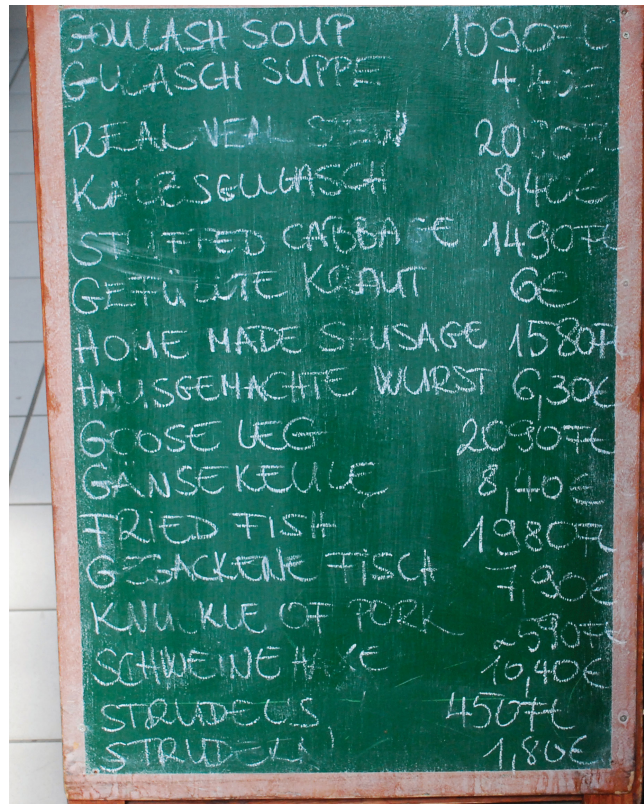 GOULASH SOUP 1090Ft
GULASCH SUPPE 4,40€
REAL VEAL STEW 2090Ft
KALBSGULASCH 8,40€
STUFFED CABBAGE 1490Ft
GEFÜLLTE KRAUT 6€
HOME MADE SAUSAGE 1580Ft
HAUSGEMACHTE WURST 6,30€
GOOSE LEG 2090Ft
GÄNSEKEULE 8,40€
FRIED FISH 1980Ft
GEBACKENE FISCH 7,90€
KNUCKLE OF PORK 2590Ft
SCHWEINEHAXE 10,40€
STRUDELS 450Ft
STRUDELN 1,80€